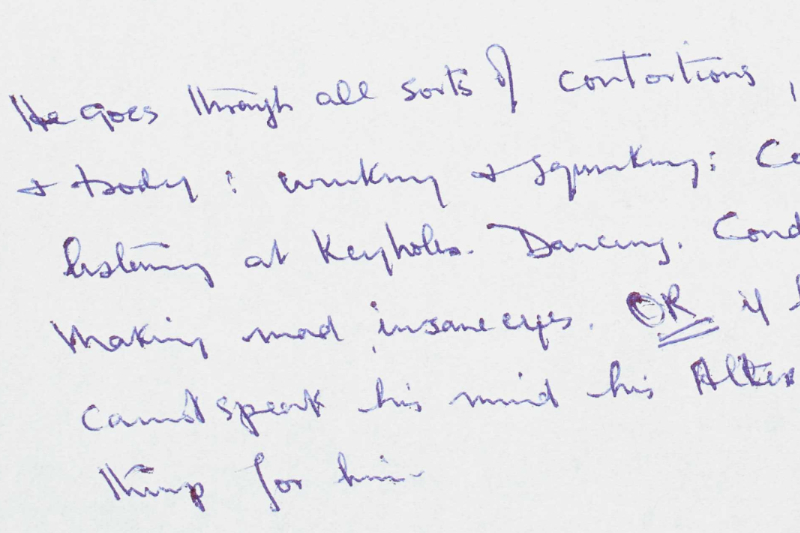 He goes through all sorts of contortions,
& body: winking & squinking: Co
listening at Keyholes. Dancing. Cond
Making mad, insane eyes. OR if h
cannot speak his mind his Alter
things for him